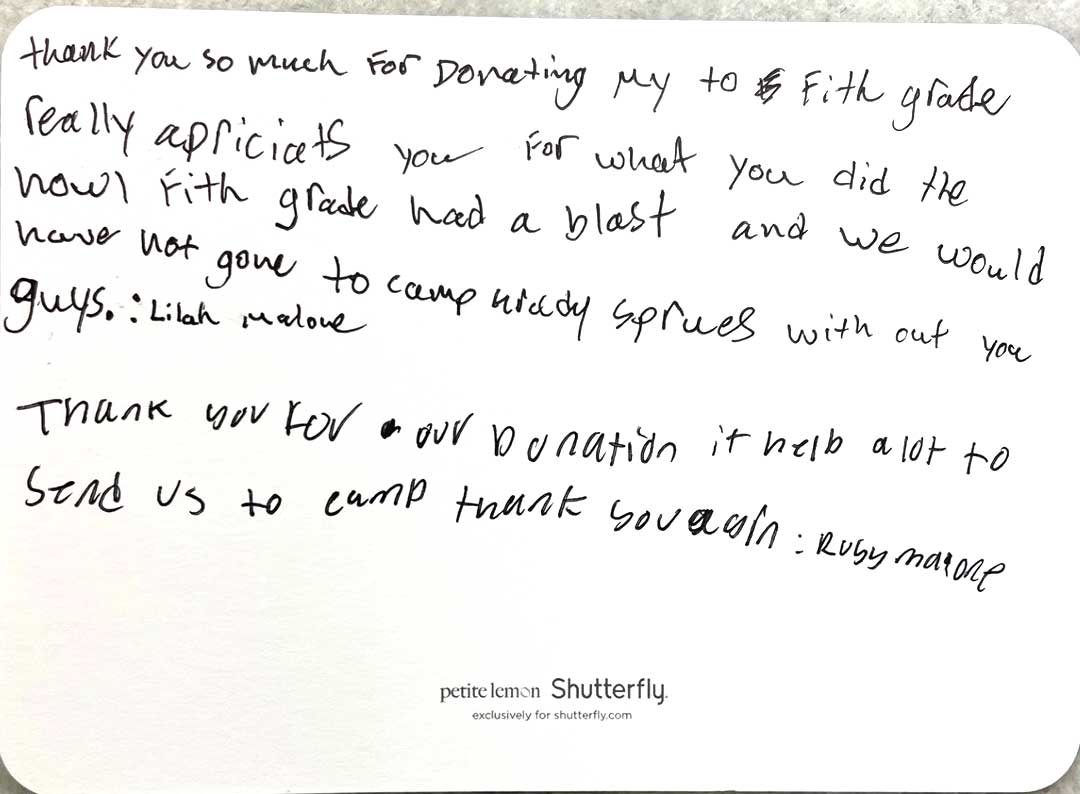 thank you so much For Donating my to Fith grade
really apriciats you For what you did the
howl Fith grade had a blast and we would
have not gone to camp wrady sprues with out you
guys. : Lilah malone
Thank you For our Donation it help a lot to
Send us to camp thank you agin : Ruby malone
petite lemon Shutterfly.
exclusively for shutterfly.com